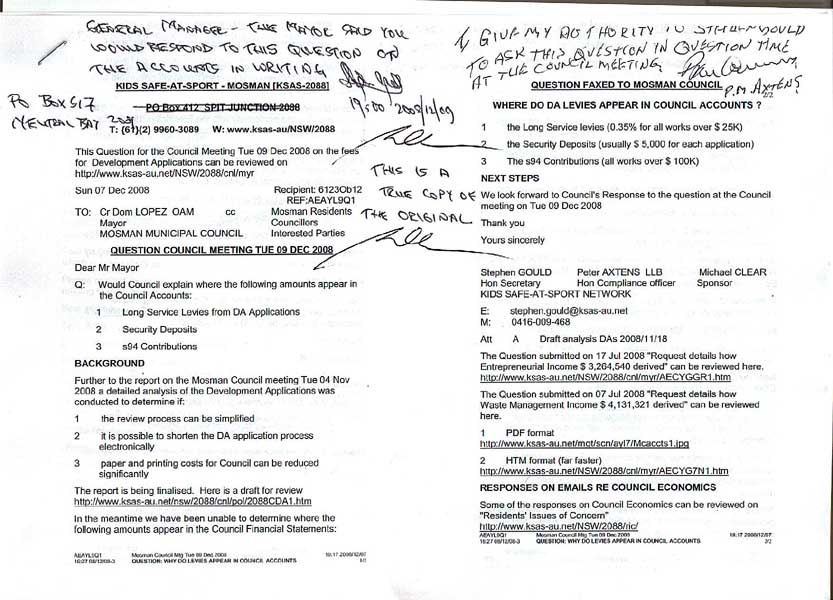 GENERAL MANAGER - THE MAYOR SAID YOU
WOULD RESPOND TO THIS QUESTION ON
THE ACCOUNTS IN WRITING
KIDS SAFE-AT-SPORT - MOSMAN [KSAS-2088]
PO Box 412 SPIT JUNCTION 2088
PO BOX 517
NEUTRAL BAY
T: (61)(2) 9960-3089 W: www.ksas-au/NSW/2088
19:00 2008/12/09
This Question for the Council Meeting Tue 09 Dec 2008 on the fees
for Development Applications can be reviewed on
http://www.ksas-au.net/NSW/2088/cnl/myr
Sun 07 Dec 2008 Recipient: 6123Ob12
REF:AEAYL9Q1
TO: Cr Dom LOPEZ OAM cc Mosman Residents
Mayor Councillors
MOSMAN MUNICIPAL COUNCIL Interested Parties
THIS IS A
TRUE COPY OF
THE ORIGINAL
QUESTION COUNCIL MEETING TUE 09 DEC 2008
Dear Mr Mayor
Q: Would Council explain where the following amounts appear in
the Council Accounts:
1 Long Service Levies from DA Applications
2 Security Deposits
3 s94 Contributions
BACKGROUND
Further to the report on the Mosman Council meeting Tue 04 Nov
2008 a detailed analysis of the Development Applications was
conducted to determine if:
1 the review process can be simplified
2 it is possible to shorten the DA application process
electronically
3 paper and printing costs for Council can be reduced
significantly
The report is being finalised. Here is a draft for review
http://www.ksas-au.net/nsw/2088/cnl/pol/2088CDA1.htm
In the meantime we have been unable to determine where the
following amounts appear in the Council Financial Statements:
AEAYL9Q1 Mosman Council Mtg Tue 09 Dec 2008 19:17 2008/12/07
16:27 08/12/08-3 QUESTION: WHY DO LEVIES APPEAR IN COUNCIL ACCOUNTS 1/2
I GIVE MY AUTHORITY TO STEPHEN GOULD
TO ASK THIS QUESTION IN QUESTION TIME
AT THE COUNCIL MEETING
P.M. AXTENS
QUESTION FAXED TO MOSMAN COUNCIL
2/2
WHERE DO DA LEVIES APPEAR IN COUNCIL ACCOUNTS ?
1 the Long Service levies (0.35% for all works over $ 25K)
2 the Security Deposits (usually $ 5,000 for each application)
3 The s94 Contributions (all works over $ 100K)
NEXT STEPS
We look forward to Council's Response to the question at the Council
meeting on Tue 09 Dec 2008
Thank you
Yours sincerely
Stephen GOULD Peter AXTENS LLB Michael CLEAR
Hon Secretary Hon Compliance officer Sponsor
KIDS SAFE-AT-SPORT NETWORK
E: stephen.gould@ksas-au.net
M: 0416-009-468
Att A Draft analysis DAs 2008/11/18
The Question submitted on 17 Jul 2008 "Request details how
Entrepreneurial Income $ 3,264,540 derived" can be reviewed here.
http://www.ksas-au.net/NSW/2088/cnl/myr/AECYGGR1.htm
The Question submitted on 07 Jul 2008 "Request details how
Waste Management Income $ 4,131,321 derived" can be reviewed
here.
1 PDF format
http://www.ksas-au.net/mgt/scn/ayl7/Mcaccts1.jpg
2 HTM format (far faster)
http://www.ksas-au.net/NSW/2088/cnl/myr/AECYG7N1.htm
RESPONSES ON EMAILS RE COUNCIL ECONOMICS
Some of the responses on Council Economics can be reviewed on
"Residents' Issues of Concern"
http://www.ksas-au.net/NSW/2088/ric/
AEAYL9Q1 Mosman Council Mtg Tue 09 Dec 2008 19:17 2008/12/07
16:27 08/12/08-3 QUESTION: WHY DO LEVIES APPEAR IN COUNCIL ACCOUNTS 2/2